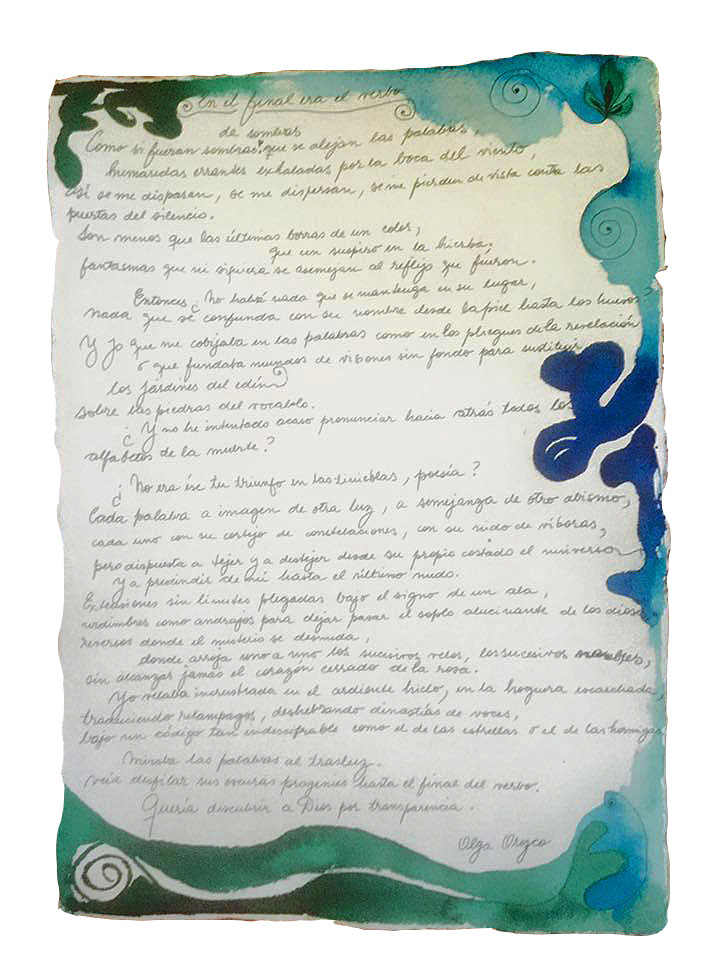 En el final era el verbo
de sombras
Como si fueran sombras que se alejan las palabras,
humaredas errantes exhaladas por la boca del viento,
así se me dispersan, se me dispersan, se me pierden de vista contra las
puertas del silencio.
Son menos que las últimas borras de un color,
que un suspiro en la hierba;
fantasmas que ni siquiera se asemejan al reflejo que fueron.
Entonces ¿No habrá nada que se mantenga en su lugar,
nada que se confunda con su nombre desde la piel hasta los huesos?
Y yo que me cobijaba en las palabras como en los pliegues de la revelación
o que fundaba mundos de visiones sin fondo para sustituir
los jardines del edén
sobre las piedras del vocablo.
¿Y no he intentado acaso pronunciar hacia atrás todos los
alfabetos de la muerte?
¿No era ése tu triunfo en las tinieblas, poesía?
Cada palabra a imagen de otra luz, a semejanza de otro abismo,
cada uno con su cortejo de constelaciones, con su nido de víboras,
pero dispuesta a tejer y a destejer desde su propio costado el universo
y a prescindir de mí hasta el último nudo.
Extensiones sin límites plegadas bajo el signo de un ala,
urdimbres como andrajos para dejar pasar el soplo alucinante de los dioses
reversos donde el misterio se desnuda,
donde arroja uno a uno los sucesivos velos, los sucesivos nombres,
sin alcanzar jamás el corazón cerrado de la rosa.
Yo velaba incrustrada en el ardiente hielo, en la hoguera escarchada,
traduciendo relámpagos, deshebrando dinastías de voces,
bajo un código tan indescifrable como el de las estrellas o el de las hormigas
Miraba las palabras al trasluz.
Veía desfilar sus oscuras progenies hasta el final del verbo.
Quería descubrir a Dios por transparencia.
Olga Orozco